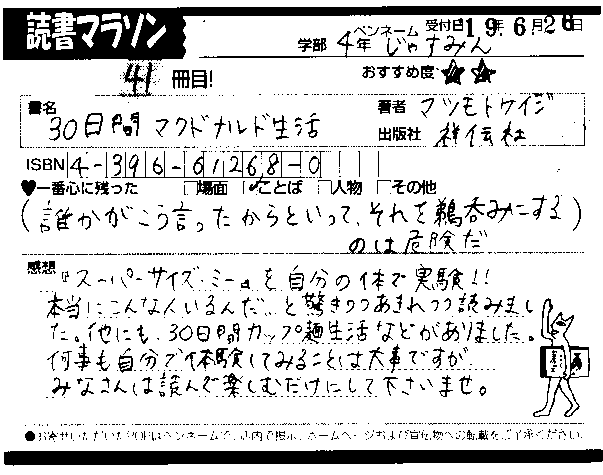 読書マラソン
学部 4年 ペンネーム じゃすみん 受付日 19年 6月 26日
41 冊目! おすすめ度 ☆☆
書名 30日間 マクドナルド生活
著者 マツモトケイジ
出版社 祥伝社
ISBN 4-396-61268-0
♥一番心に残った □場面 ☑ことば □人物 □その他
(誰かがこう言ったからといって、それを鵜呑みにする)
のは危険だ
感想 『スーパーサイズ・ミー』を自分の体で実験!!
本当にこんな人いるんだ…と驚きつつあきれつつ読みまし
た。他にも、30日間カップ麺生活などがありました。
何事も自分で体験してみることは大事ですが
みなさんは読んで楽しむだけにして下さいませ。
●お寄せいただいたPOPはペンネームで、店内で掲示、ホームページおよび宣伝物への転載をご了承ください。